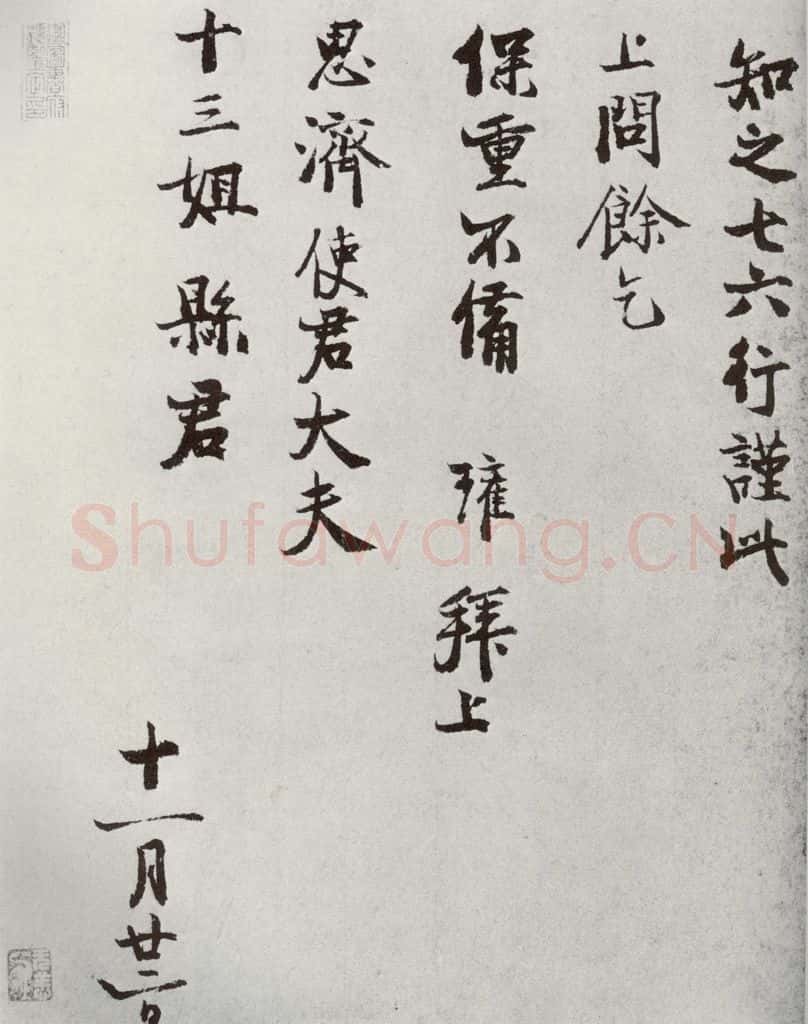 知之七六行謹此
上問餘乞
保重不備 瓘 拜上
思濟使君大夫
十三姐縣君
十一月廿二日
Shufawang.CN